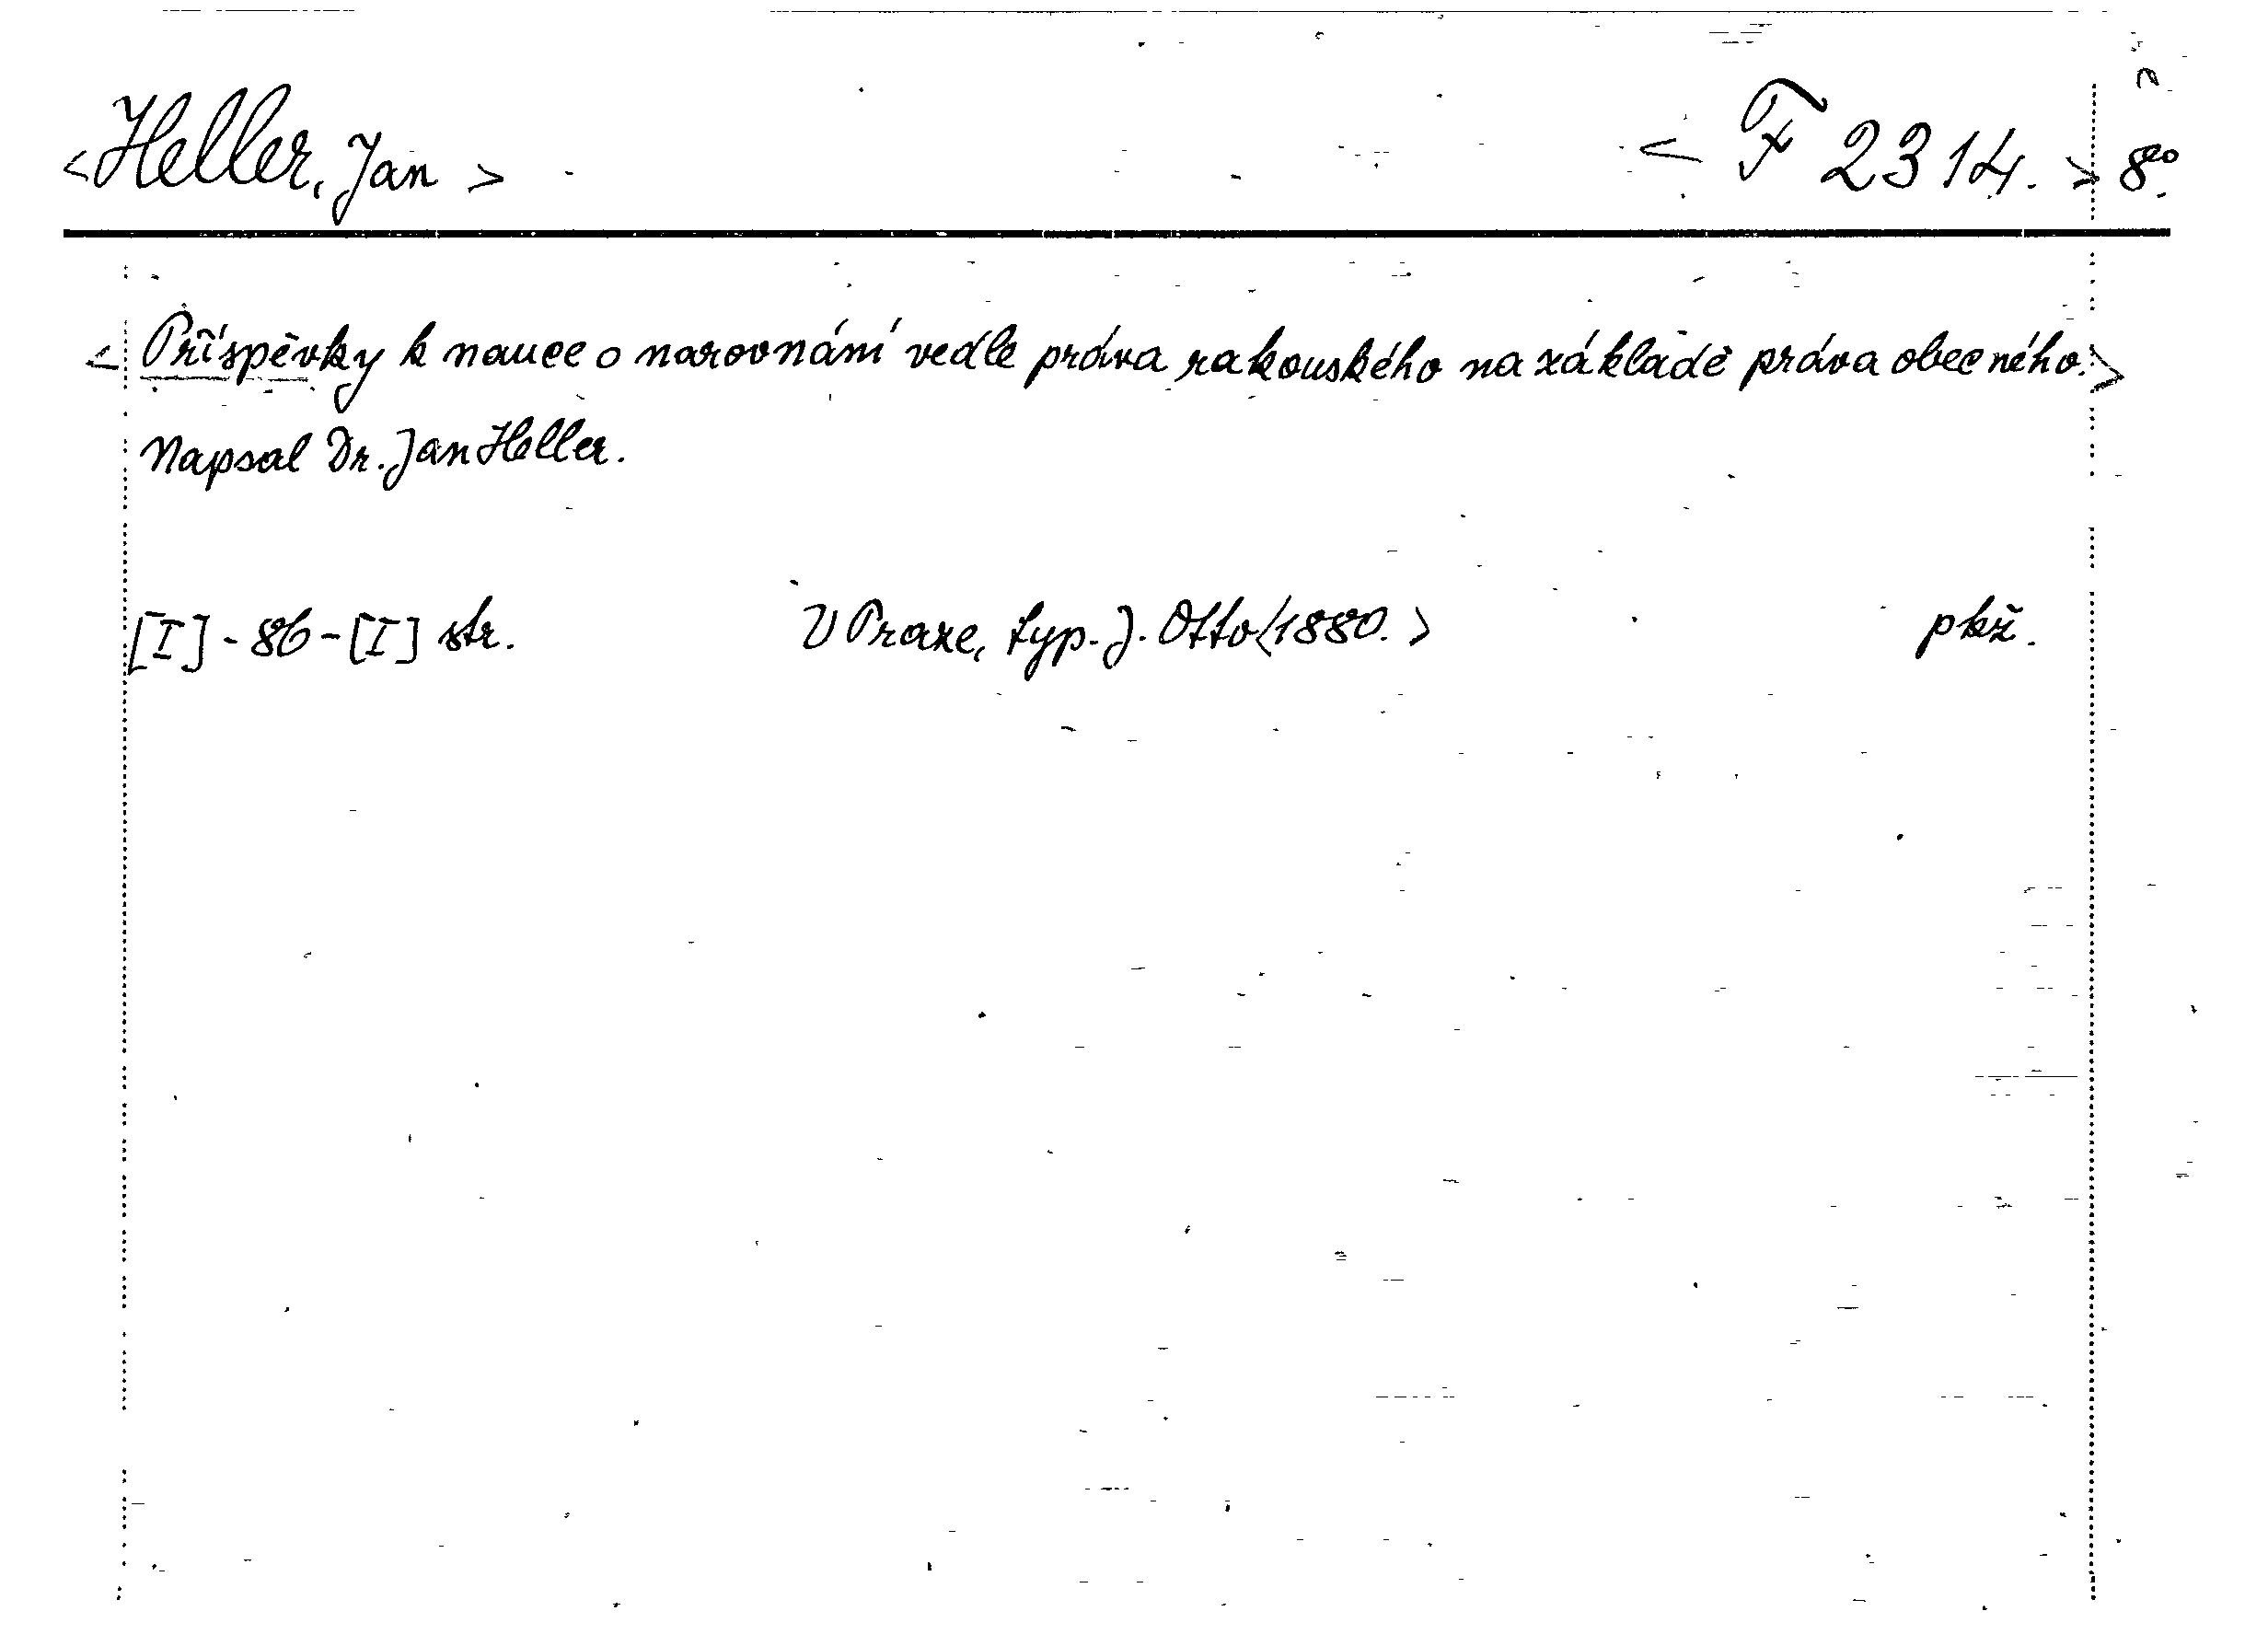 <Heller, Jan> <F 2314.> 8º
<Příspěvky k nauce o narovnání vedle práva rakouského na základě práva obecného.>
Napsal Dr. Jan Heller.
[I]-86-[I] str. V Praze, typ. J. Otto <1880.> pkž.